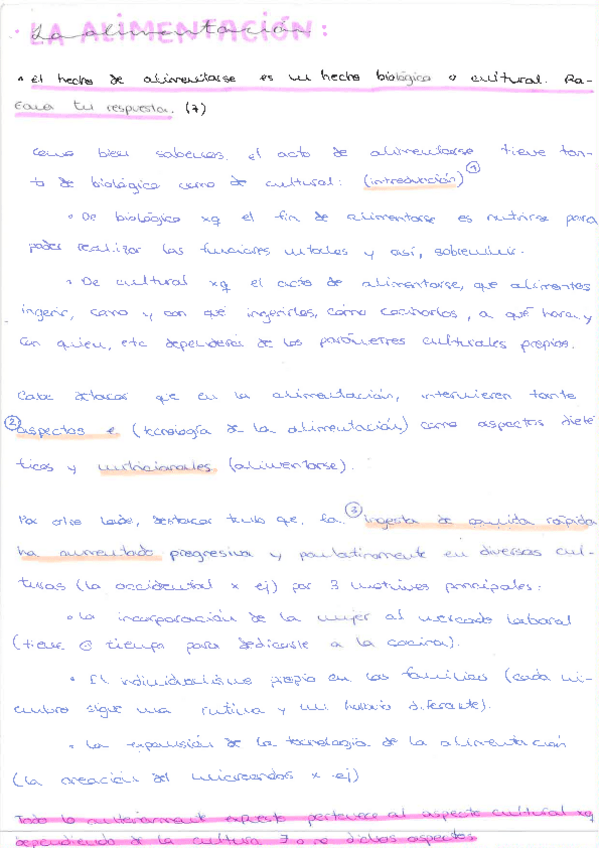 · LA ALIMENTACIÓN:
La alimentación
• El hecho de alimentarse es un hecho biológico o cultural. Ra-
zona tu respuesta. (7)
Como bien sabemos, el acto de alimentarse tiene tan-
to de biológico como de cultural: (introducción) 1
• De biológico xq el fin de alimentarse es nutrirse para
poder realizar las funciones vitales y así, sobrevivir.
• De cultural xq el acto de alimentarse, que alimentos
ingerir, como y con qué ingerirlos, cómo cocinarlos, a qué hora y
con quien, etc dependerá de los parámetros culturales propios.
Cabe detacar que en la alimentación, intervienen tanto
2 aspectos e (tecnología de la alimentación) como aspectos dieté
ticos y nutricionales (alimentarse).
Por otro lado, destacar tmb que, la 3 ingesta de comida rápida
ha aumentado progresiva y paulatinamente en diversas cul-
turas (la occidental x ej) por 3 motivos principales:
• La incorporación de la mujer al mercado laboral
(tiene tiempo para dedicarle a la cocina).
• El individualismo propio en las familias (cada mi-
embro sigue una rutina y un horario diferente).
• La expansión de la tecnología de la alimentación
(la creación del microondas x ej)
Todo lo anteriormente expuesto pertenece al aspecto cultural xq
dependiendo de la cultura o no dichos aspectos